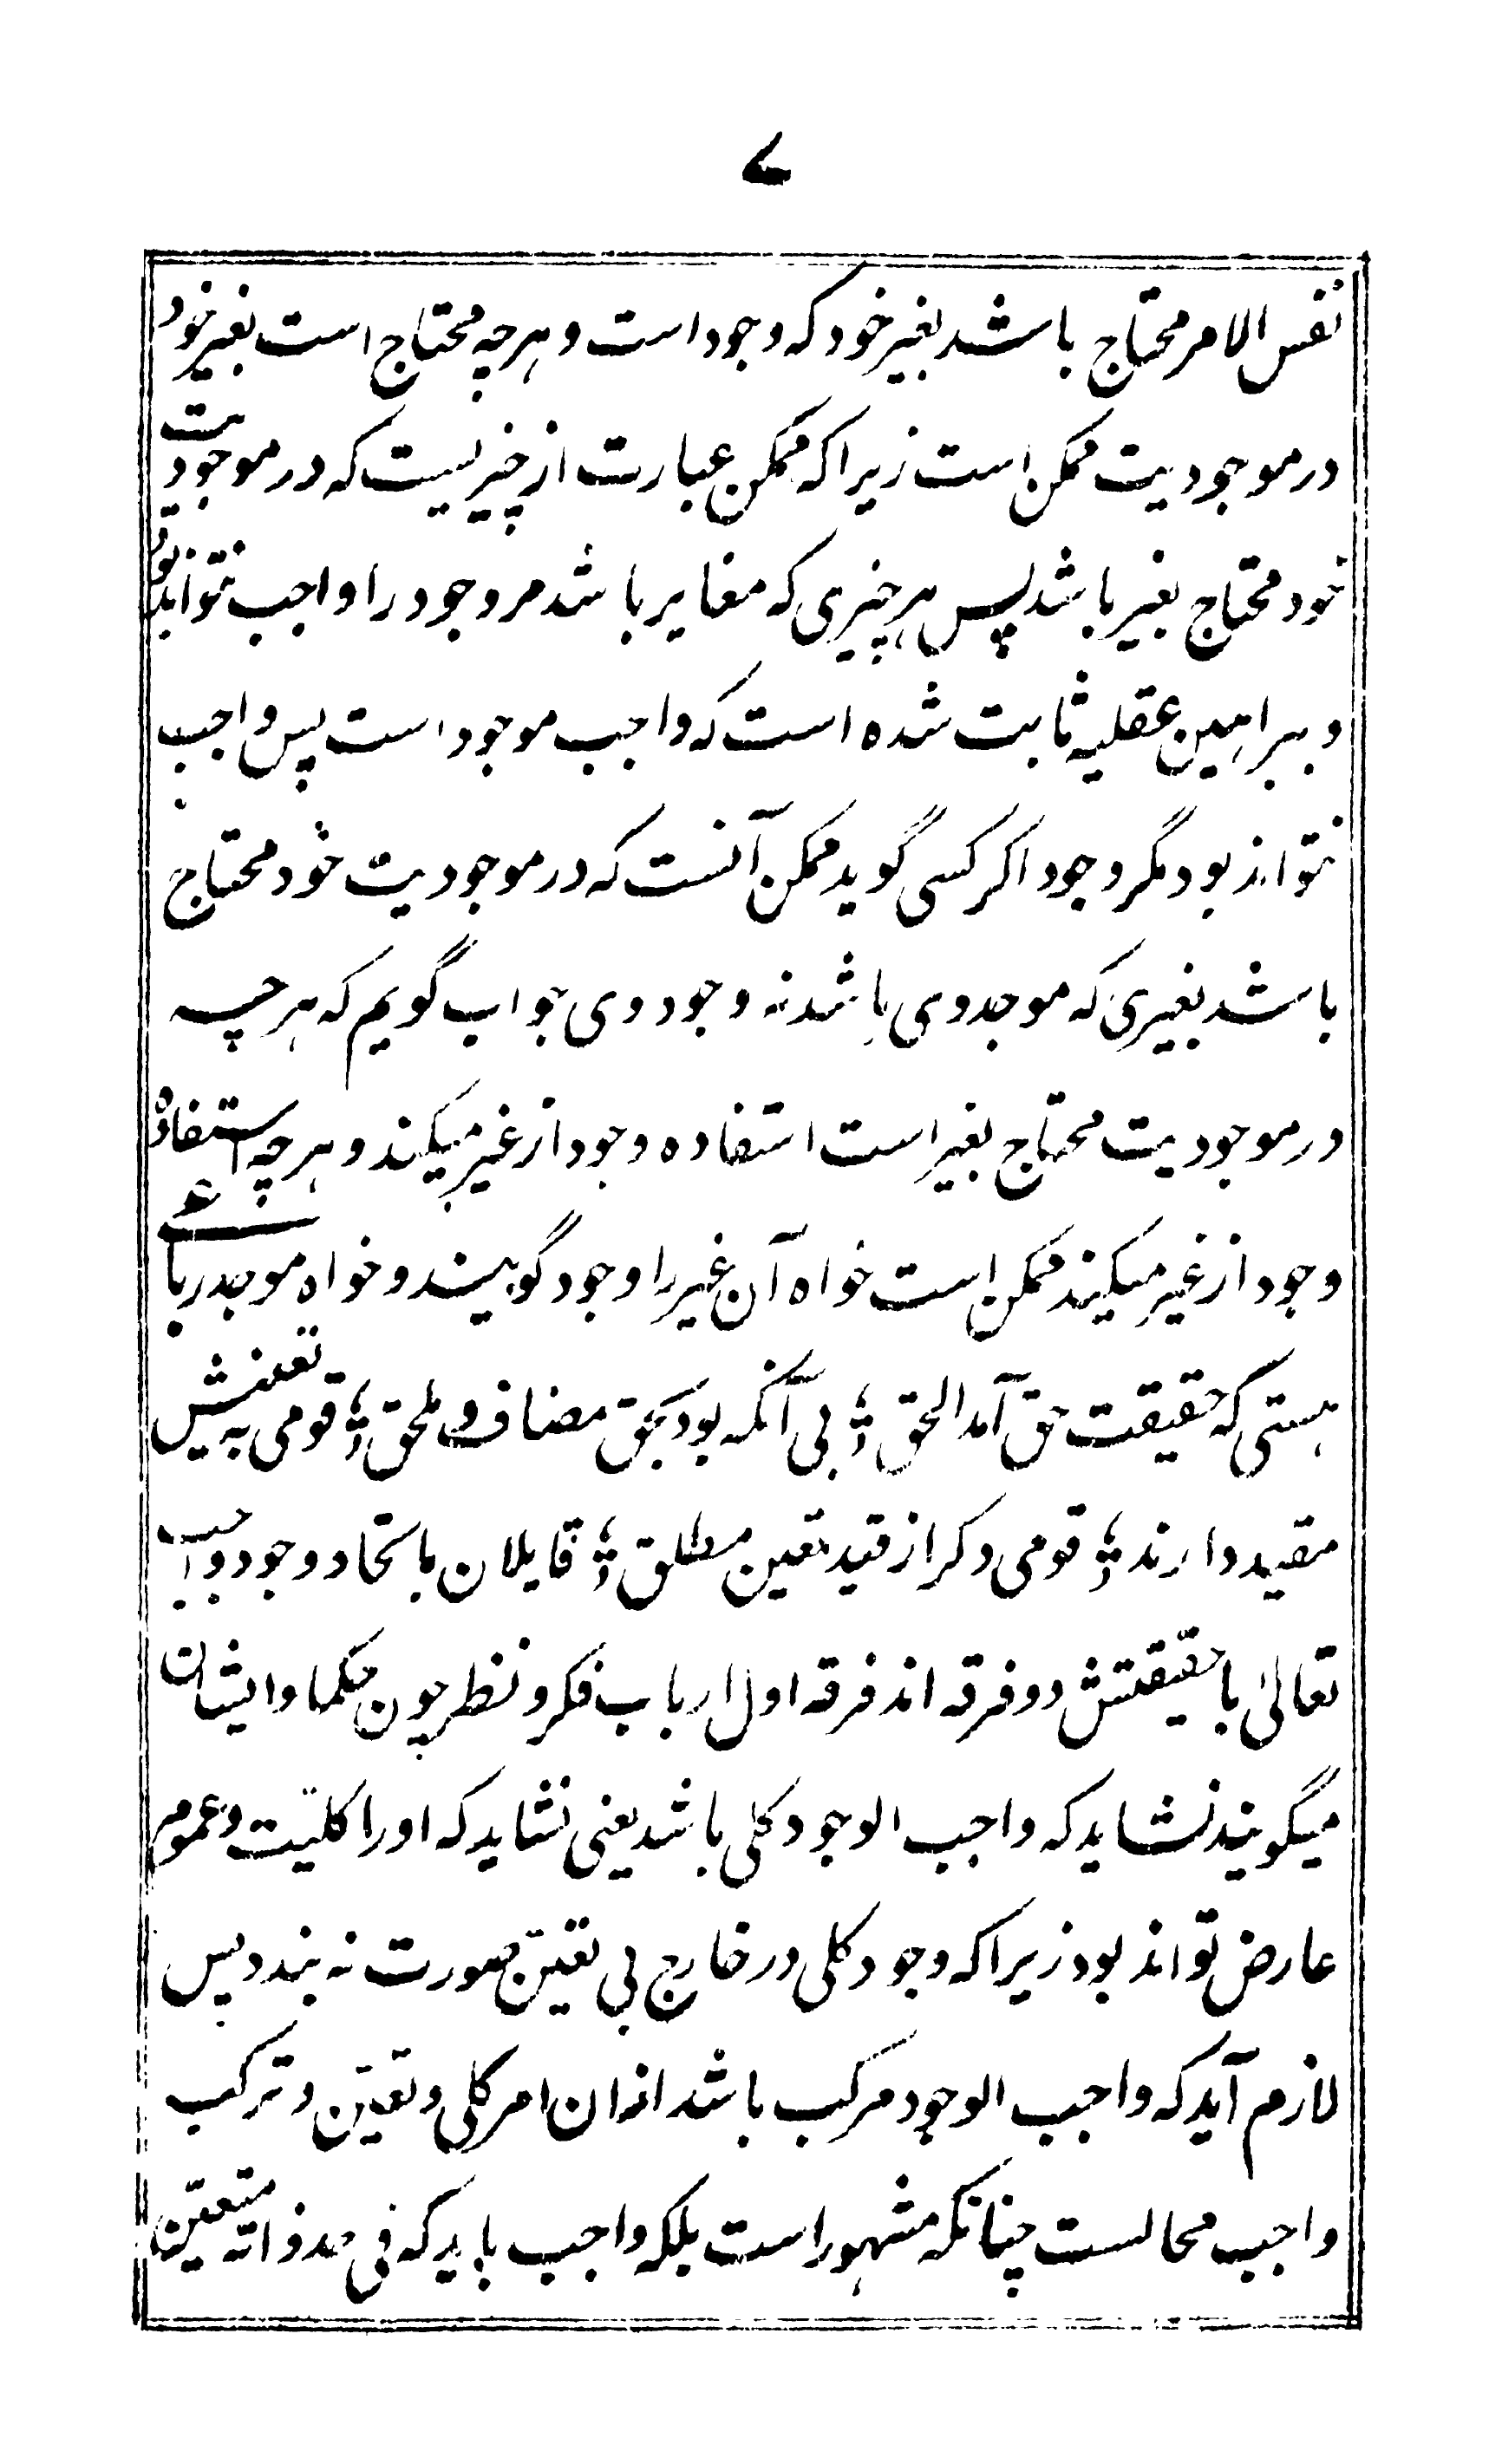 ۷
نفس الامر محتاج باشد بغیر خود که وجود است و هرچه محتاج است بغیر خود
در موجودیت ممکن است زیرا که ممکن عبارت از چیزیست که در موجودیت
خود محتاج بغیر باشد پس هر چیزی که مغایر باشد مر وجود را واجب نتواند بود
و ببراهین عقلیه ثابت شده است که واجب موجود است پس واجب
نتواند بود مگر وجود اکر کسی گوید ممکن آنست که در موجودیت خود محتاج
باشد بغیری که موجد وی باشد نه وجود وی جواب گویم که هر چه
در موجودیت محتاج بغیر است استفاده وجود از غیر میکند و هر چه استفاده
وجود از غیر میکند ممکن است خواه آن غیر را وجود گویند و خواه موجد رباعی
هستی که حقیقت حق آمد الحق ؛ بی آنکه بود بحق مضاف و ملحق ؛ قومی به تعینش
مقید دارند ؛ قومی دکر از قید تعین مطلق ؛ قایلان باتحاد وجود واجب
تعالی با حقیقتش دو فرقه اند فرقه اول ارباب فکر و نظر چون حکما و ایشان
میگویند نشاید که واجب الوجود کلی باشد یعنی نشاید که او را کلیّت و عموم
عارض تواند بود زیرا که وجود کلی در خارج بی تعیّن صورت نه بندد پس
لازم آید که واجب الوجود مرکب باشد ازان امر کلی و تعیّن و ترکب
واجب محالست چنانکه مشهور است بلکه واجب باید که فی حد ذاته متعیّن